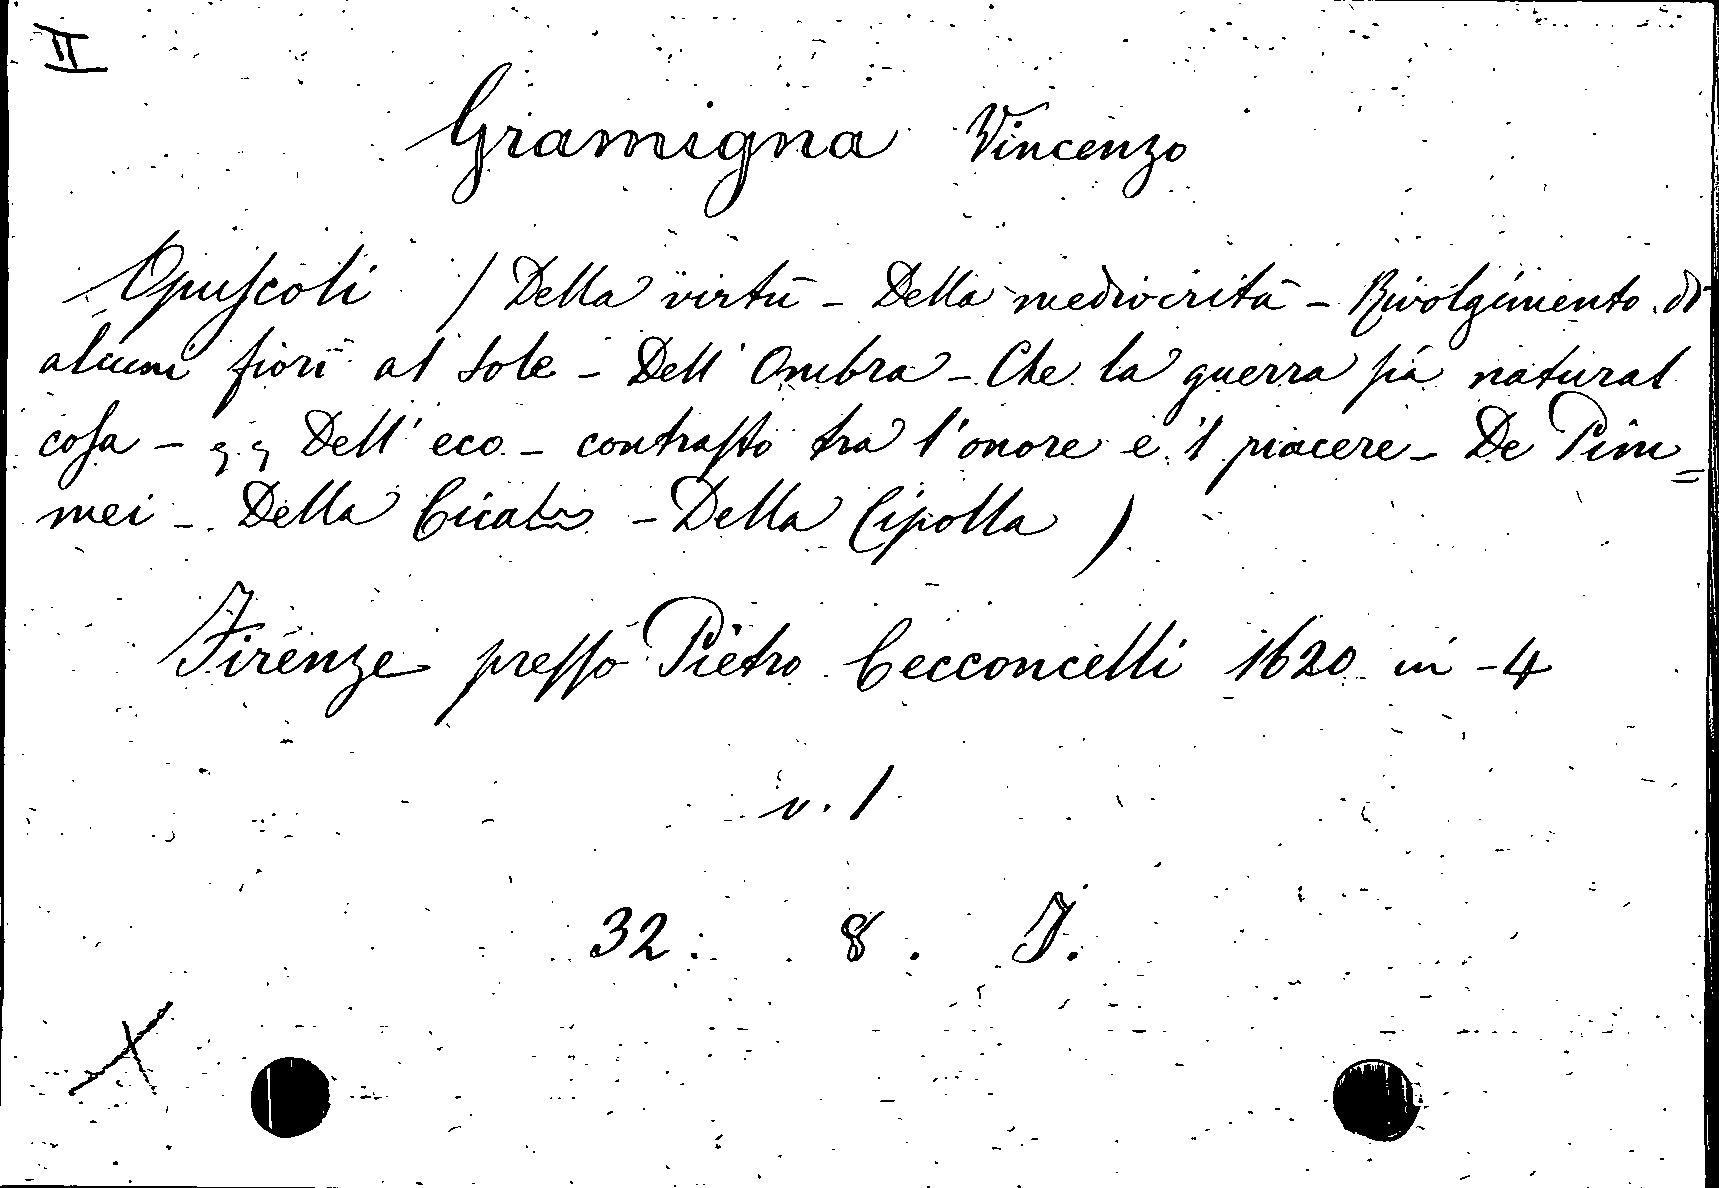 II
Gramigna Vincenzo
Opuscoli (Della virtù - Della mediocrità - Rivolgimento di
alcuni fiori al Sole - Dell' Ombra - Che la guerra sia natural
cosa - Dell' eco - contrasto tra l'onore e il piacere - De Pim=
mei - Della Cicala - Della Cipolla )
Firenze presso Pietro Cecconcelli 1620 in -4
v. 1
32. 8. J.
X